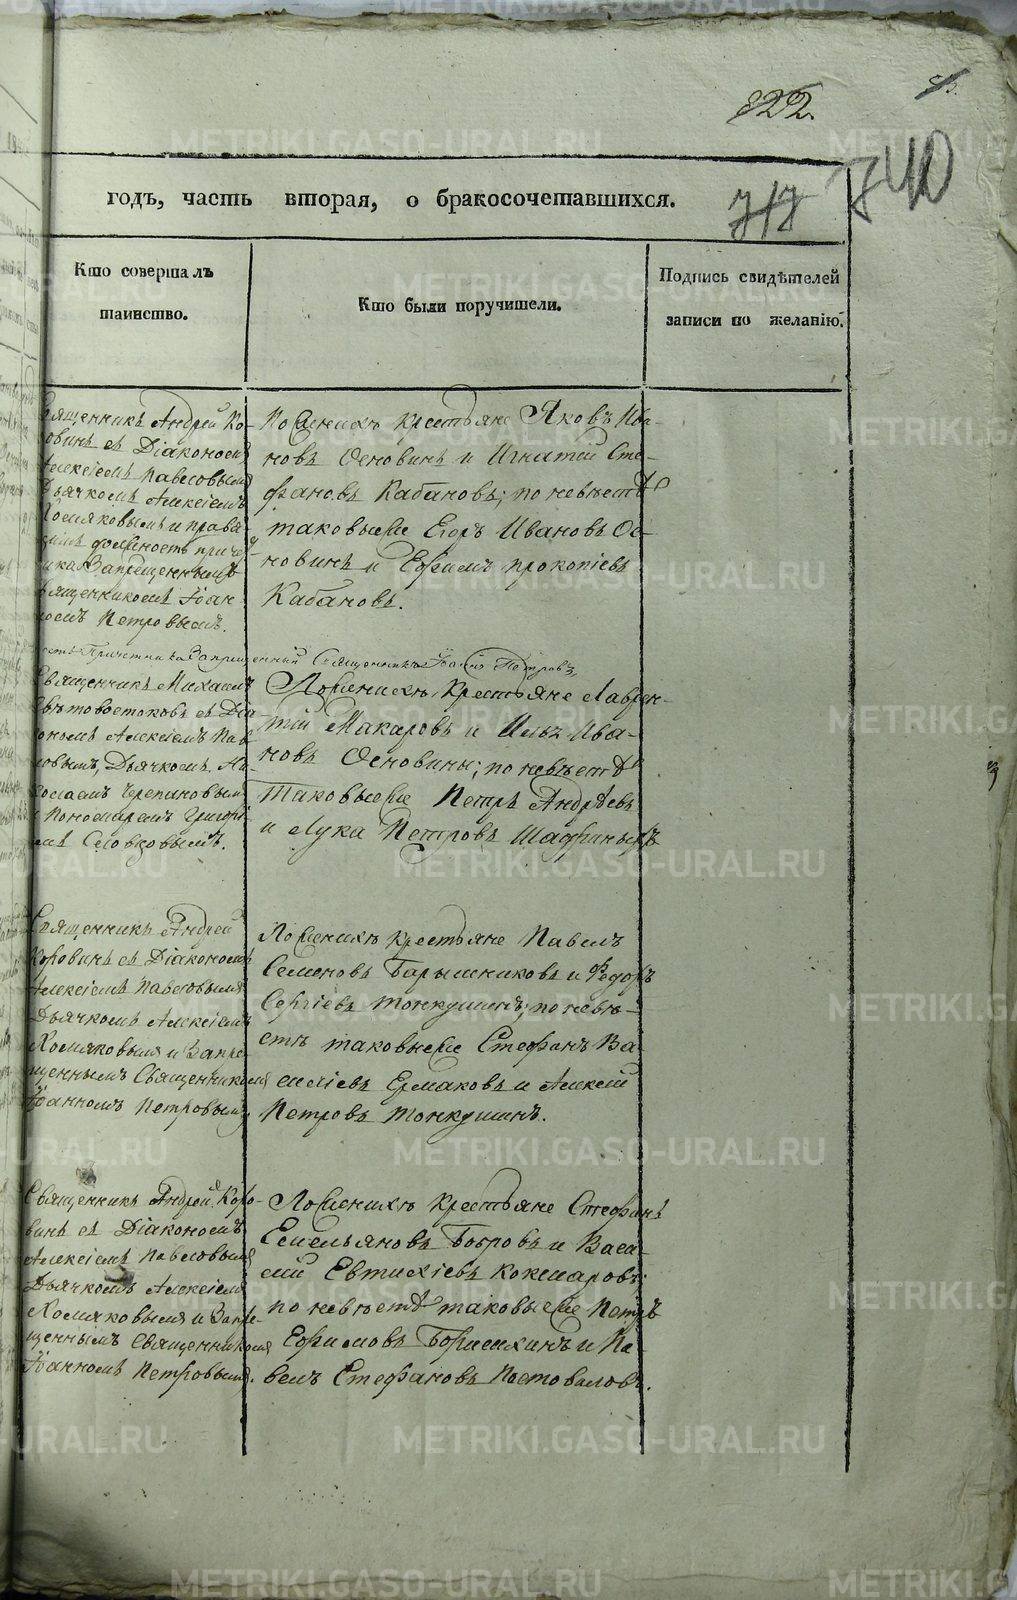 822.
740
годъ, часть вторая, о бракосочетавшихся.
717
Кто совершалъ
таинство.
Кто были поручители.
Подпись свидѣтелей
записи по желанію.
Священникъ Андрей Ко-
ровинъ съ Діакономъ
Алексіемъ Павловымъ
Дьячкомъ Алексіемъ
Хомяковымъ и правя-
щимъ должность приче-
тника Запрещеннымъ
Священникомъ Іоан-
номъ Петровымъ.
По женихѣ крестьяне Яковъ Ива-
новъ Основинъ и Игнатій Сте-
фановъ Кабановъ; по невѣстѣ
таковыеже Егоръ Ивановъ Ос-
новинъ и Ефимъ Прокопіевъ
Кабановъ.
Причетника Запрещенный Священникъ Іоаннъ Петровъ
Священникъ Михаилъ
Свѣтовостоковъ съ Діа-
кономъ Алексіемъ Пав-
ловымъ, Дьячкомъ Ни-
колаемъ Черепановымъ
и Пономаремъ Григорі-
емъ Словцовымъ.
По женихѣ крестьяне Лаврен-
тій Макаровъ и Илья Ива-
новъ Основины; по невѣстѣ
Таковыеже Петръ Андреевъ
и Лука Петровъ Шафрины
Священникъ Андрей
Коровинъ съ Діакономъ
Алексіемъ Павловымъ
Дьячкомъ Алексіемъ
Хомяковымъ и Запре-
щеннымъ Священникомъ
Іоанномъ Петровымъ
По женихѣ крестьяне Павелъ
Семеновъ Барышниковъ и Ѳедоръ
Сергіевъ Тонкушинъ; по невѣ-
стѣ таковыеже Стефанъ Ва-
силіевъ Ермаковъ и Алексій
Петровъ Тонкушинъ.
Священникъ Андрей Коро-
винъ съ Діакономъ
Алексіемъ Павловымъ
Дьячкомъ Алексіемъ
Хомяковымъ и Запре-
щеннымъ Священникомъ
Іоанномъ Петровымъ.
По женихѣ крестьяне Стефанъ
Емельяновъ Бобровъ и Васи-
лій Евтихіевъ Кокшаровъ;
по невѣстѣ таковыеже Петръ
Ефимовъ и Па-
велъ Стефановъ Постоваловъ.